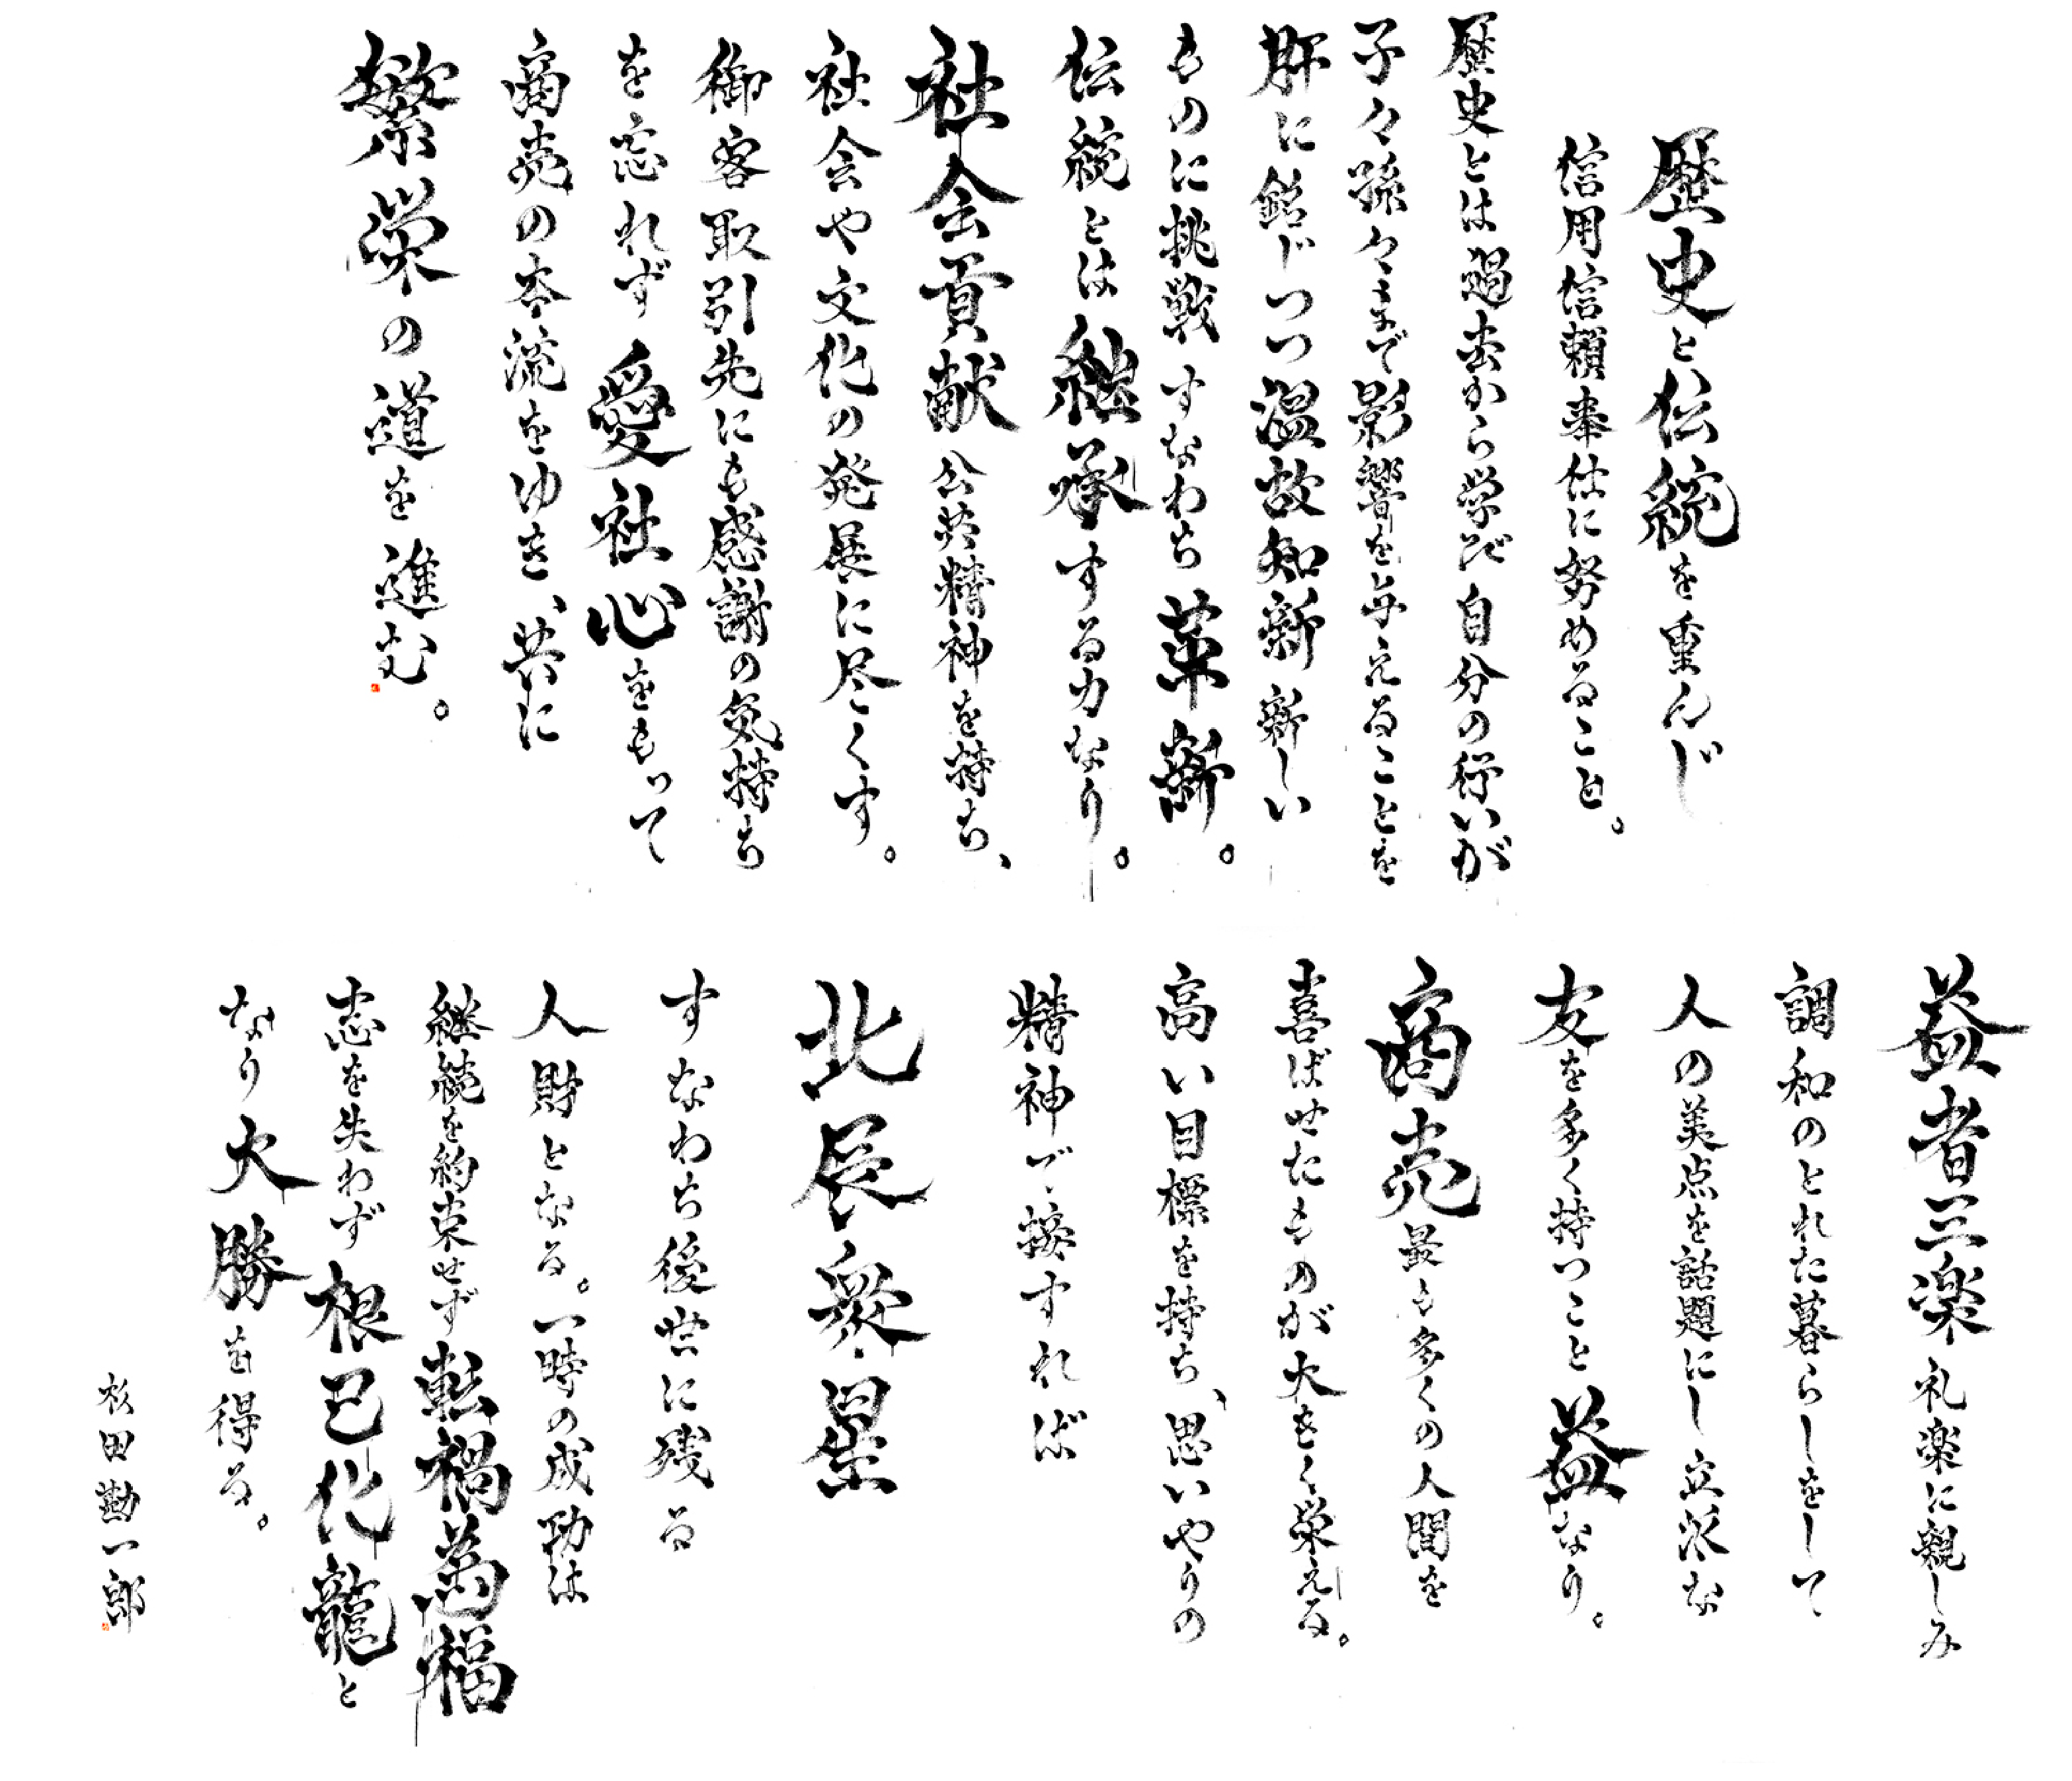 歴史と伝統を重んじ
信用信頼奉仕に努めること。
歴史とは過去から学び自分の行いが
子々孫々まで影響を与えることを
肝に銘じつつ温故知新新しい
ものに挑戦すなわち革新。
伝統とは継承する力なり。
社会貢献公共精神を持ち、
社会や文化の発展に尽くす。
御客取引先にも感謝の気持ち
を忘れず愛社心をもって
商売の本流をゆき、共に
繁栄の道を進む。
益者三楽礼楽に親しみ
調和のとれた暮らしをして
人の美点を話題にし立派な
友を多く持つこと益なり。
商売最も多くの人間を
喜ばせたものが大きく栄える。
高い目標を持ち、思いやりの
精神で接すれば
北辰衆星
すなわち後世に残る
人財となる。一時の成功は
継続を約束せず転禍為福
志を失わず根己化龍と
なり大勝を得る。
田勘一郎